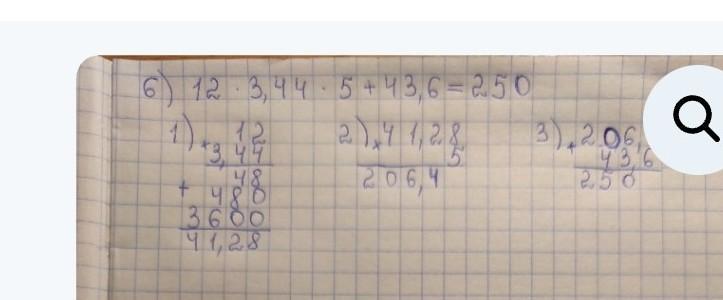 6) 12 · 3,44 · 5 + 43,6 = 250
1) × 12
3,44
48
+ 480
3600
41,28
2) × 41,28
5
206,4
3) + 206,
43,6
250